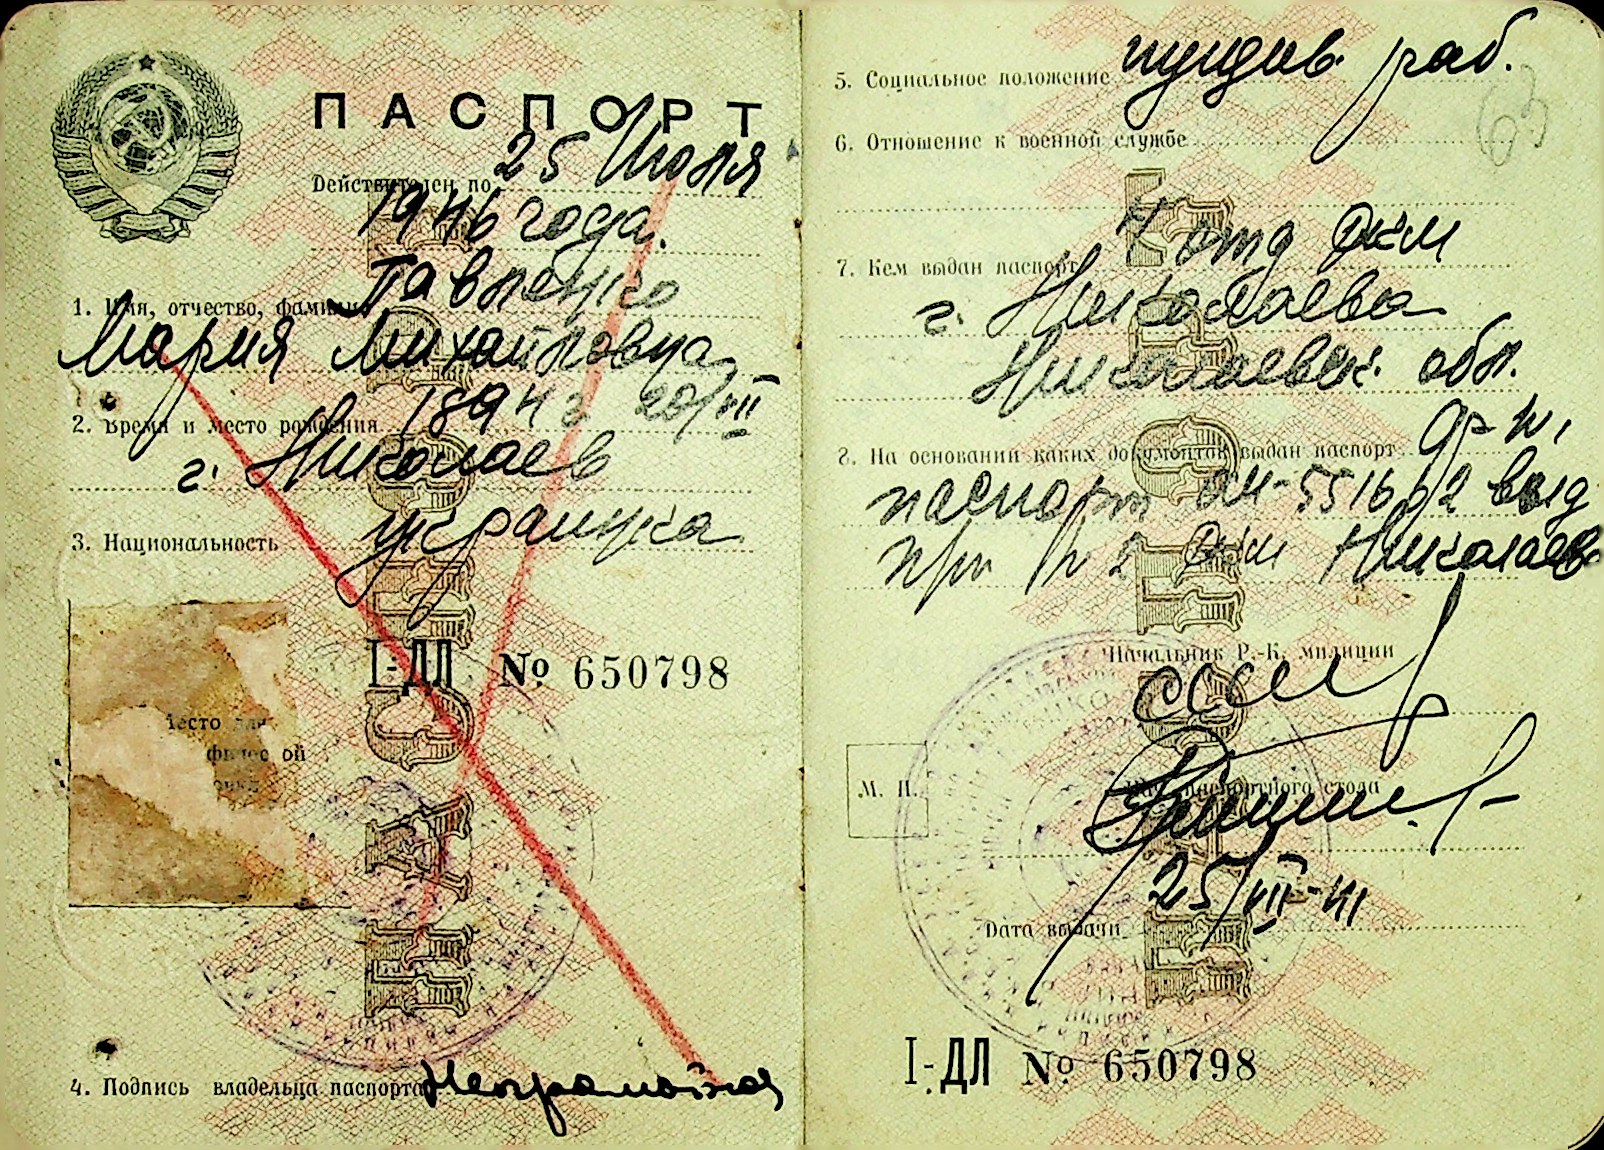 ПАСПОРТ
Действителен по 25 Июля
1946 года.
1. Имя, отчество, фамилия Павленко
Мария Михайловна
2. Время и место рождения 1894 г 20/VII
г. Николаев
3. Национальность украинка
I-ДЛ № 650798
Место для
фотографической
4. Подпись владельца паспорта Неграмотная
5. Социальное положение иждив. раб.
6. Отношение к военной службе
7. Кем выдан паспорт 4 отд РКМ
г. Николаева
Николаевск. обл.
8. На основании каких документов выдан паспорт
паспорт 551662 выд
РКМ Николаев
Начальник Р.-К. милиции
М. П. Нач. паспортного стола
Дата выдачи 25/VII-41
I-ДЛ № 650798
ПАСПОРТ
ПАСПОРТ